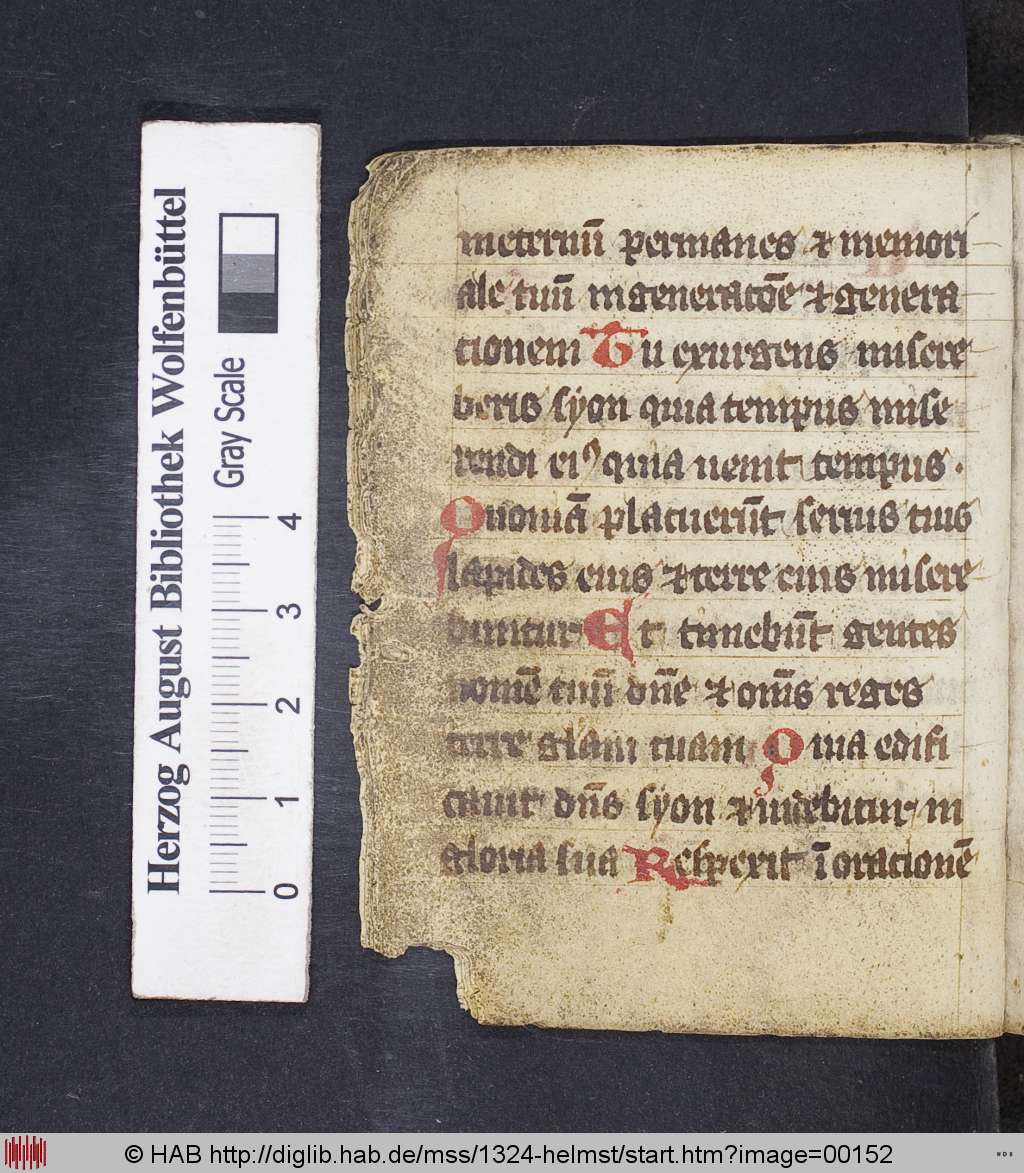 Herzog August Bibliothek Wolfenbüttel
Gray Scale
0 1 2 3 4
ineternū permanes ⁊ memori
ale tuū ingeneracōē ⁊ genera
tionem Tu exurgens misere
beris syon quia tempus mise
rendi eiꝰ quia uenit tempus .
Quoniā placuerūt seruis tuis
lapides eius ⁊ terre eius misere
buntur Et timebūt gentes
nomē tuū dn̄e ⁊ om̄s reges
terre glām tuam Quia edifi
cauit dn̄s syon ⁊ uidebitur in
gloria sua Respexit ī orationē
© HAB http://diglib.hab.de/mss/1324-helmst/start.htm?image=00152